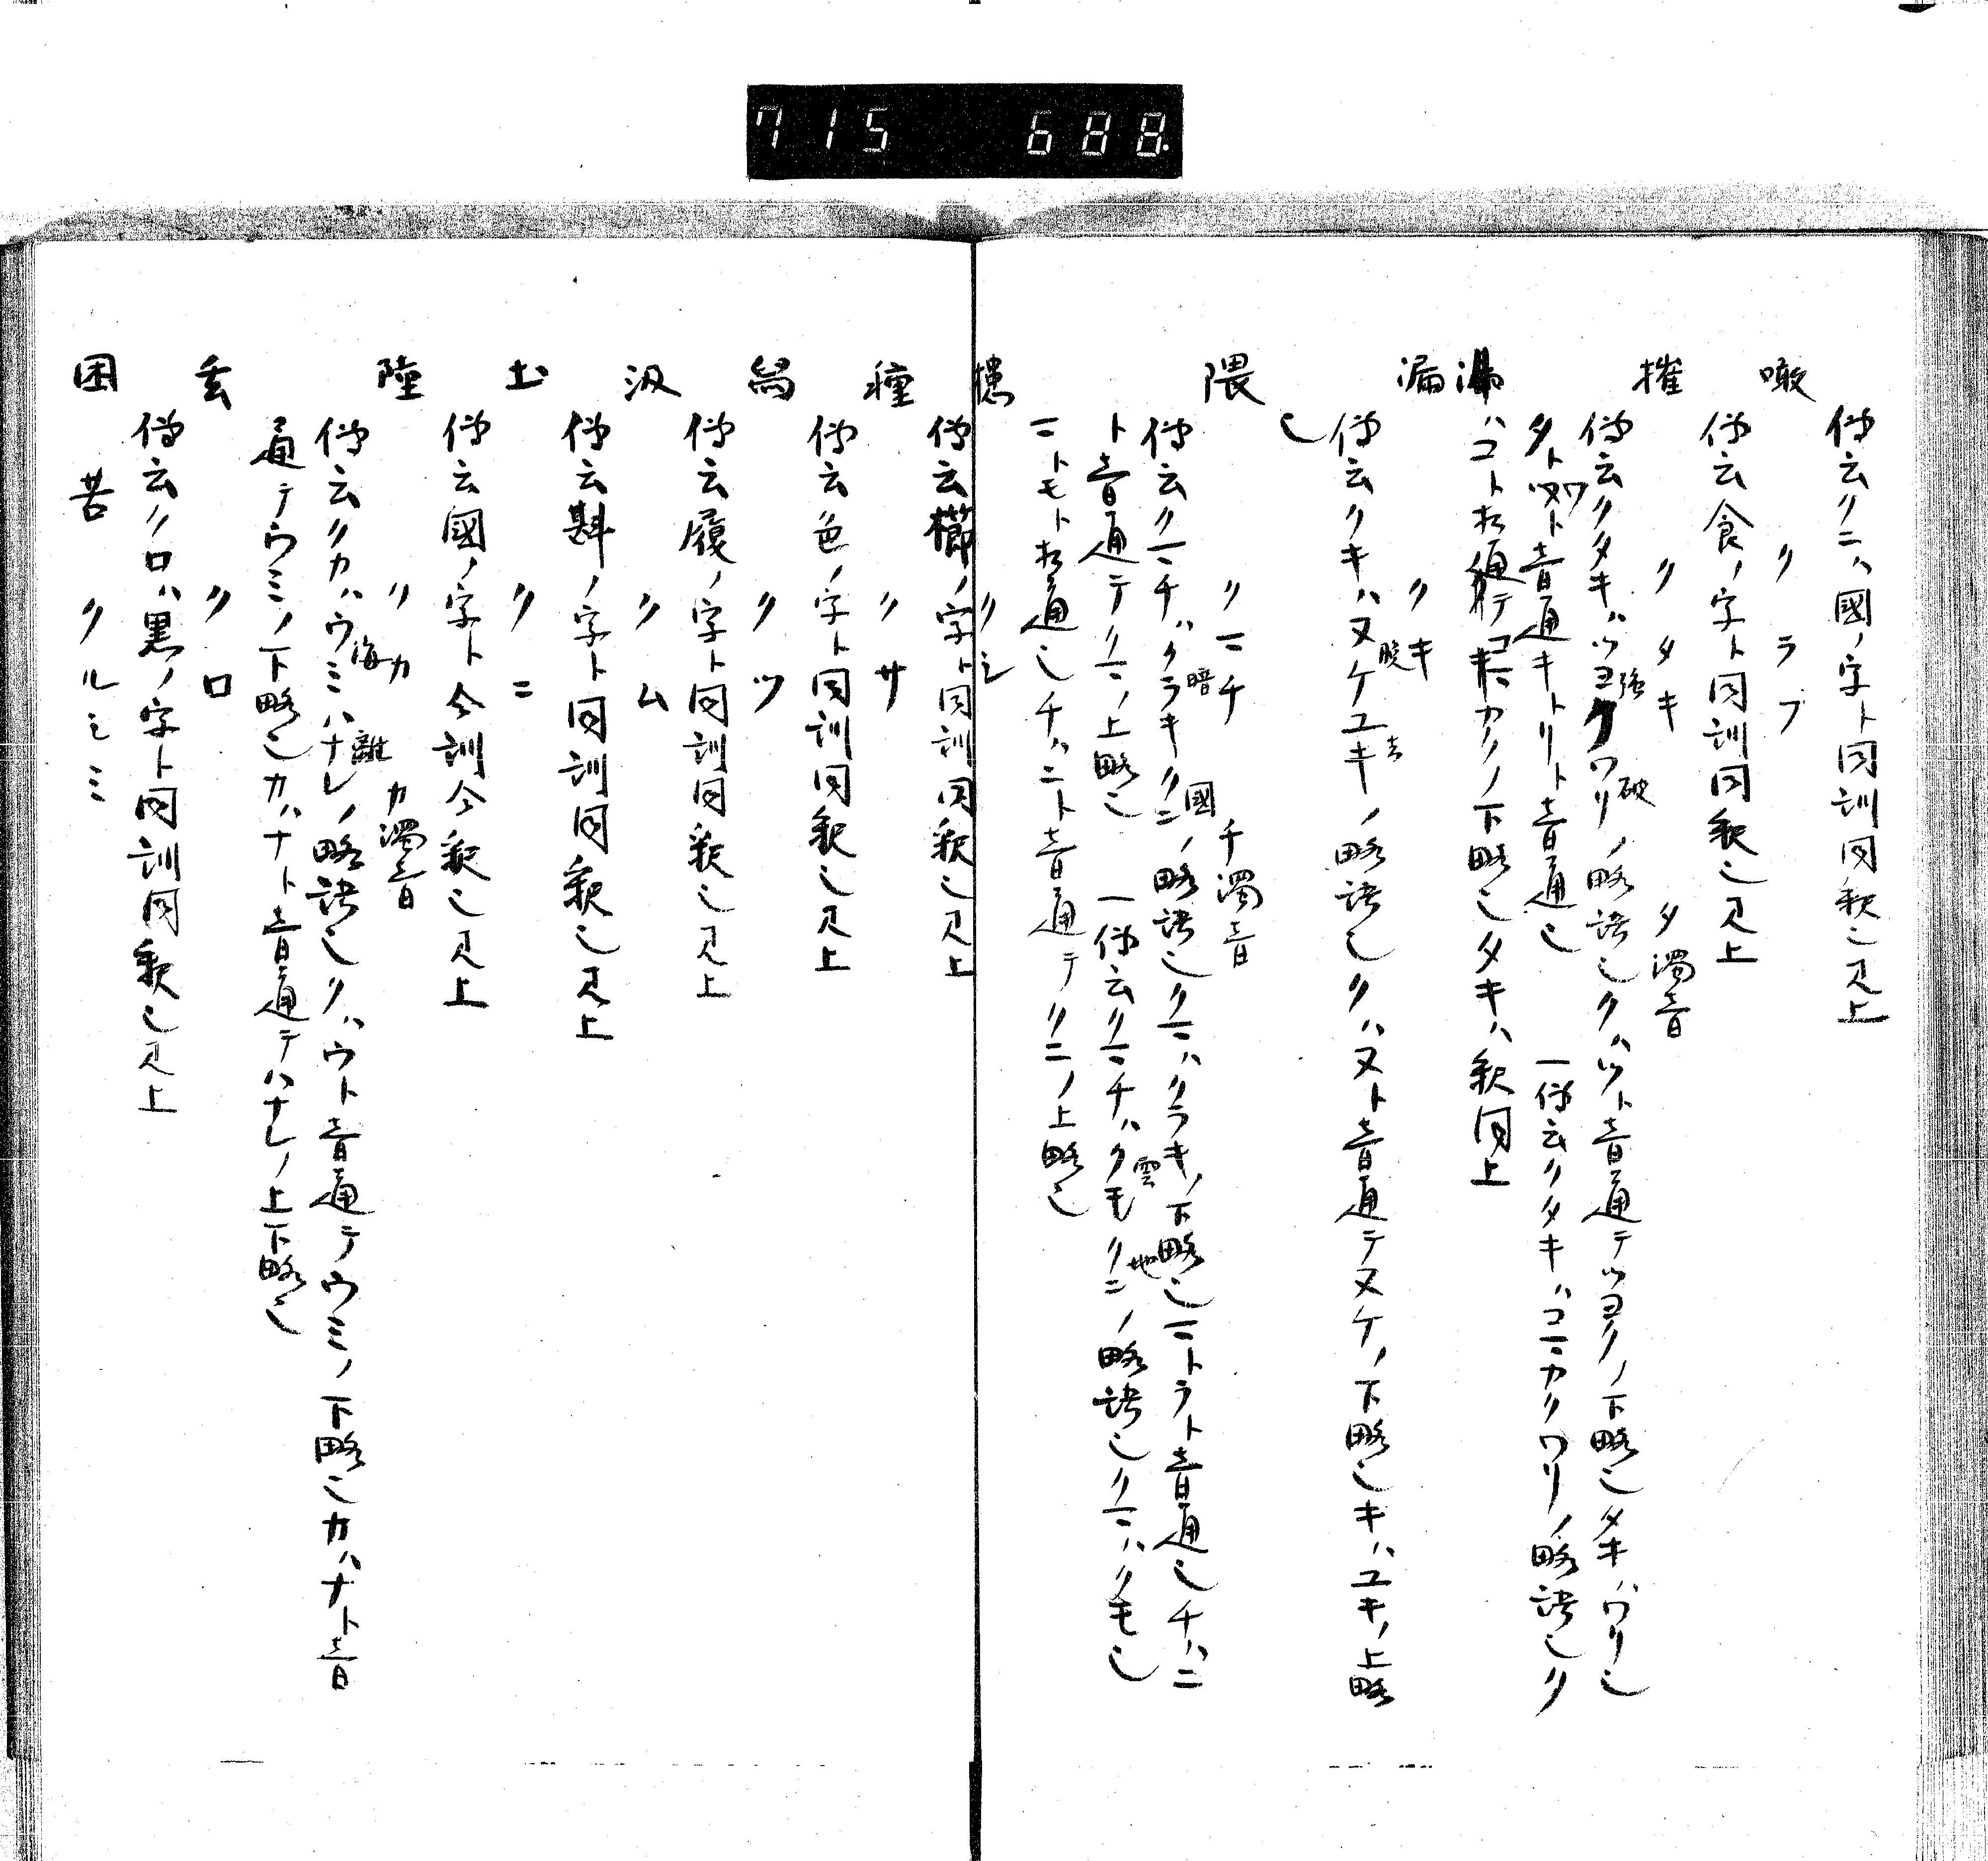 715 688
傳云クニハ國ノ字ト同訓同釈也見上
噉 クラブ
傳云食ノ字ト同訓同釈也見上
摧 クタキ タ濁音
傳云クタキハツヨクワリノ略語也クハツト音通テツヨクノ下略也タキハワリ也
強 破
タトワト音通キトリト音通也 一傳云クタキハコニカクワリノ略語也ク
ハコト音通テ カクノ下略也タキハ釈同上
漏 クキ
傳云クキハヌケユキノ略語也クハヌト音通テヌケノ下略也キハユキノ上略
脱 去
也
隈 クニチ チ濁音
傳云クニチハクラキクニノ略語也クニハクラキノ下略也ニトラト音通也チハニ
暗 國
ト音通テクニノ上略也 一傳云クニチハクモクニノ略語也クニハクモ也
雲 地
ニトモト音通也チハニト音通テクニノ上略也
クシ
傳云櫛ノ字ト同訓同釈也見上
種 クサ
傳云色ノ字ト同訓同釈也見上
舄 クツ
傳云履ノ字ト同訓同釈也見上
汲 クム
傳云斟ノ字ト同訓同釈也見上
土 クニ
傳云國ノ字ト仝訓仝釈也見上
陸 クカ カ濁音
傳云クカハウミハナレノ略語也クハウト音通テウミノ下略也カハナト音
海 離
通テウミノ下略也カハナト音通テハナレノ上下略也
玄 クロ
傳云クロハ黒ノ字ト同訓同釈也見上
困苦 クルシミ